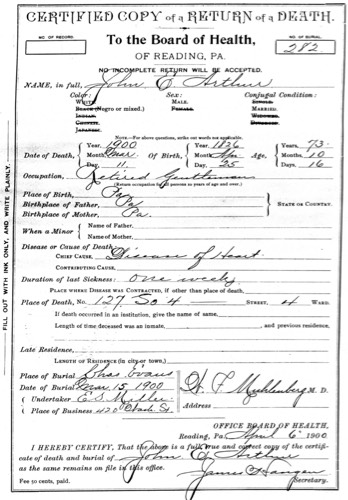 CERTIFIED COPY of a RETURN of a DEATH.
NO. OF RECORD
To the Board of Health,
NO. OF BURIAL
282
OF READING, PA.
NO INCOMPLETE RETURN WILL BE ACCEPTED.
NAME, in full, John E. Arthur
Color: Sex: Conjugal Condition:
WHITE MALE. SINGLE.
BLACK (Negro or mixed.) FEMALE. MARRIED.
INDIAN. WIDOWED.
CHINESE. DIVORCED.
JAPANESE.
NOTE.—For above questions, strike out words not applicable.
Year, 1900 Year, 1826 Years, 73
Date of Death, Month, Mar Of Birth, Month, Apr Age, Months, 10
Day, 11 Day, 25 Days, 16
Occupation, Retired Gentleman
(Return occupation for all persons 10 years of age and over.)
Place of Birth, Pa
Birthplace of Father, Pa STATE OR COUNTRY.
Birthplace of Mother, Pa.
When a Minor Name of Father,
Name of Mother,
Disease or Cause of Death:
CHIEF CAUSE, Disease of Heart
CONTRIBUTING CAUSE,
Duration of last Sickness: one week
PLACE WHERE DISEASE WAS CONTRACTED, if other than place of death,
Place of Death, No. 127 So 4 STREET, 4 WARD.
If death occurred in an institution, give the name of same,
Length of time deceased was an inmate, and previous residence,
Late Residence,
LENGTH OF RESIDENCE (in city or town,)
Place of Burial Chas Evans
Date of Burial Mar. 15, 1900
H. P. Muhlenberg M. D.
Undertaker E S Miller
Address
Place of Business 420 St
OFFICE BOARD OF HEALTH,
Reading, Pa., April 6th 1900
I HEREBY CERTIFY, That the above is a full true and correct copy of the certificate of death and burial of John E. Arthur
as the same remains on file in this office.
Fee 50 cents, paid.
James Hangen
Secretary.
FILL OUT WITH INK ONLY, AND WRITE PLAINLY.